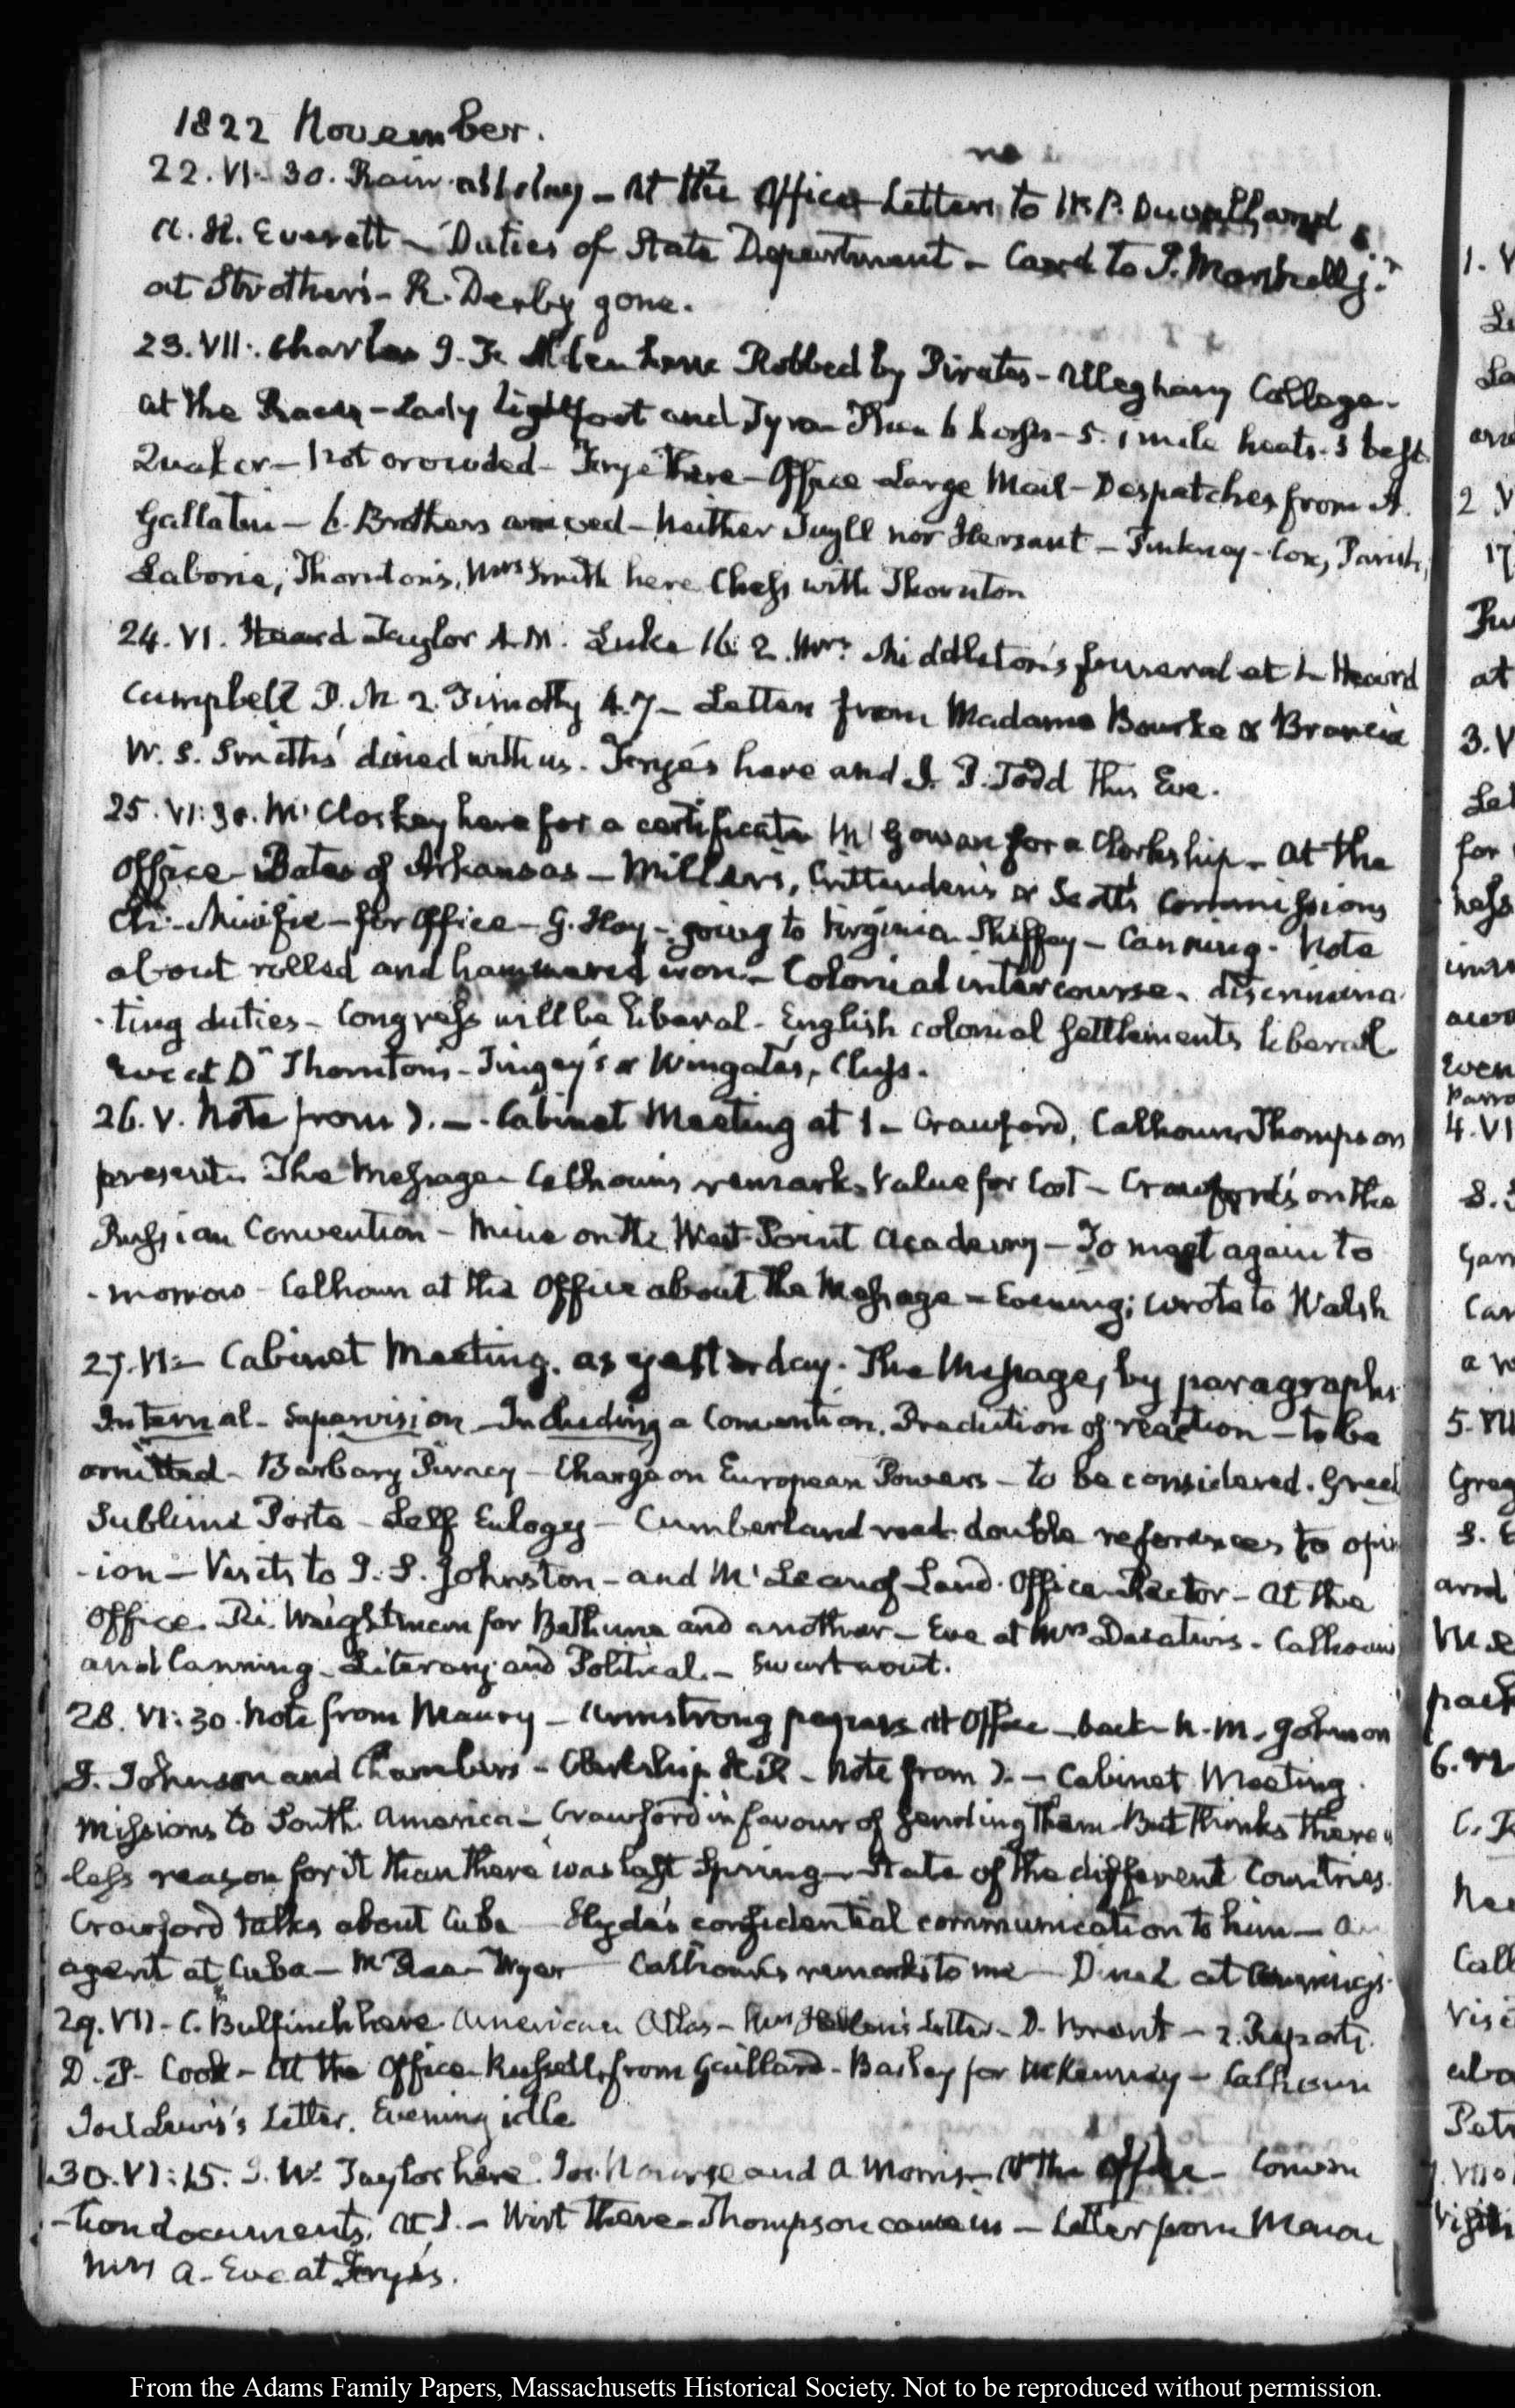 1822 November.
22. VI. 30. Rain all day – At the Office – Letters to W. P. Duvall and
A. H. Everett – Duties of State Department – Card to
at Strother's – R. Derby gone.
23. VII. Charles Robbed by Pirates – Alleghany College.
At the Races – Lady Lightfoot and 1 mile heats. 3 best
Quaker – Not crowded – Forye there – Office Large Mail – Despatches from A.
Gallatin – Brothers arrived – Neither Tuyll nor Hersant – Pinkney – Cox, Parish,
Laborie, Thornton's, Mrs Smith here Chess with Thornton
24. VI. Heard Taylor A.M. Luke 16. 2. Mrs Middleton's funeral at 1 – Heard
Campbell P.M 2. Timothy 4. 7 – Letters from Madame Bourke &
W. S. Smiths' dined with us. Forye's here and J. P. Todd this Eve.
25. VI: 30. McCloskey here for a certificate McGowan for a Clerkship – At the
Office – Bates of Arkansas – Miller's, Crittenden's & Scott's Commissions
for Office – G. Hay – going to Virginia – Canning. Note
about rolled and hammered iron – Colonial intercourse – discrimina
-ting duties – Congress will be liberal – English colonial settlements liberal
Eve at Dr Thornton's – Tingey's & Wingate's, Chess.
26. V. Note from ). – Cabinet Meeting at 1 – Crawford, Calhoun Thompson
present. The Message – Calhoun's remarks value for Cost – Crawford's on the
Russian Convention – Mine on the West-Point Academy – To meet again to
-morrow – Calhoun at the Office about the Message – Evening; wrote to Walsh
27. VI: – Cabinet Meeting. as yesterday. The Message, by paragraphs
Internal – Supervision – Including a Convention. Prediction of reaction – to be
omitted – Barbary Piracy – Charge on European Powers – to be considered. Greek
Sublime Porte – Self Eulogy – Cumberland road double references to opin
-ion – Visits to J. S. Johnston – and McLean of Land Office Rector – At the
Office. Weightman for Bethune and another – Eve at Mrs Decatur's – Calhoun
and Canning – Literary and Political – Swartwout.
28. VI: 30. Note from Maury – Armstrong papers at Office – back – R. M. Johnson
J. Johnson and Chambers – Clerkship – Note from ). – Cabinet Meeting.
Missions to South America – Crawford in favour of sending them – But thinks there is
less reason for it than there was last Spring – State of the different Countries.
Crawford talks about Cuba – Hyde's confidential communication to him – an
agent at Cuba – McRae – Wyer – Calhoun's remarks to me – Dined at Canning's.
29. VII – C. Bulfinch here American Atlas – Mrs Hellen's Letter – D. Brent –
D. P. Cook – At the Office – Russell, from Gaillard – Bailey for McKenney – Calhoun
Joel Lewis's Letter. Evening idle
30. VI: 15. J. W. Taylor here. Jos. Nourse and A Morris – At the Office – Conven
-tion documents. At ). – Wirt there – Thompson came in – Letter from
Mrs A – Eve at Forye's.
From the Adams Family Papers, Massachusetts Historical Society. Not to be reproduced without permission.